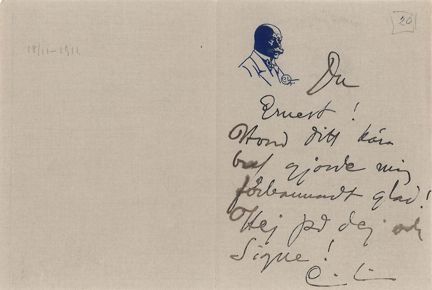 18/11-1911
20
Du
Ernest!
Hvad ditt kära
bref gjorde mig
förbannadt glad!
Hej på dej och
Signe!
C. L.